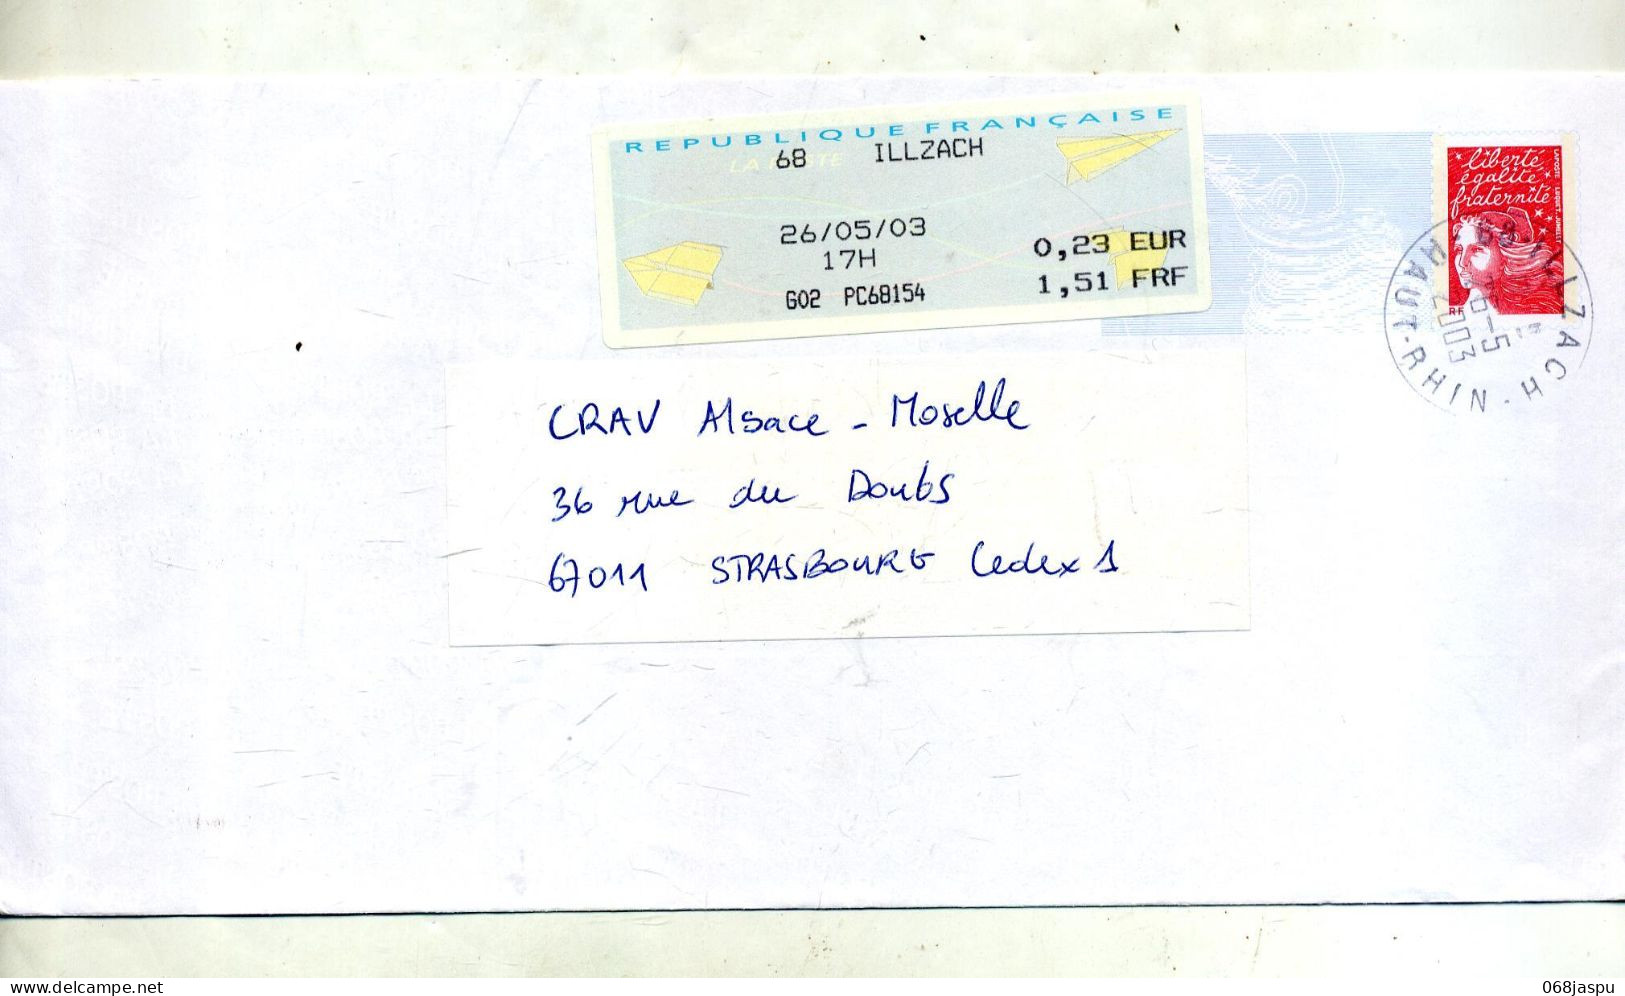 REPUBLIQUE FRANÇAISE
LA POSTE
68 ILLZACH
26/05/03
17H
0,23 EUR
1,51 FRF
G02 PC68154
liberté
égalité
fraternité
LAPOSTE LUQUET.JUMELET
RF
68 ILLZACH
5
2003
HAUT-RHIN
CRAV Alsace - Moselle
36 rue du Doubs
67011 STRASBOURG Cedex 1
www.delcampe.net
068jaspu